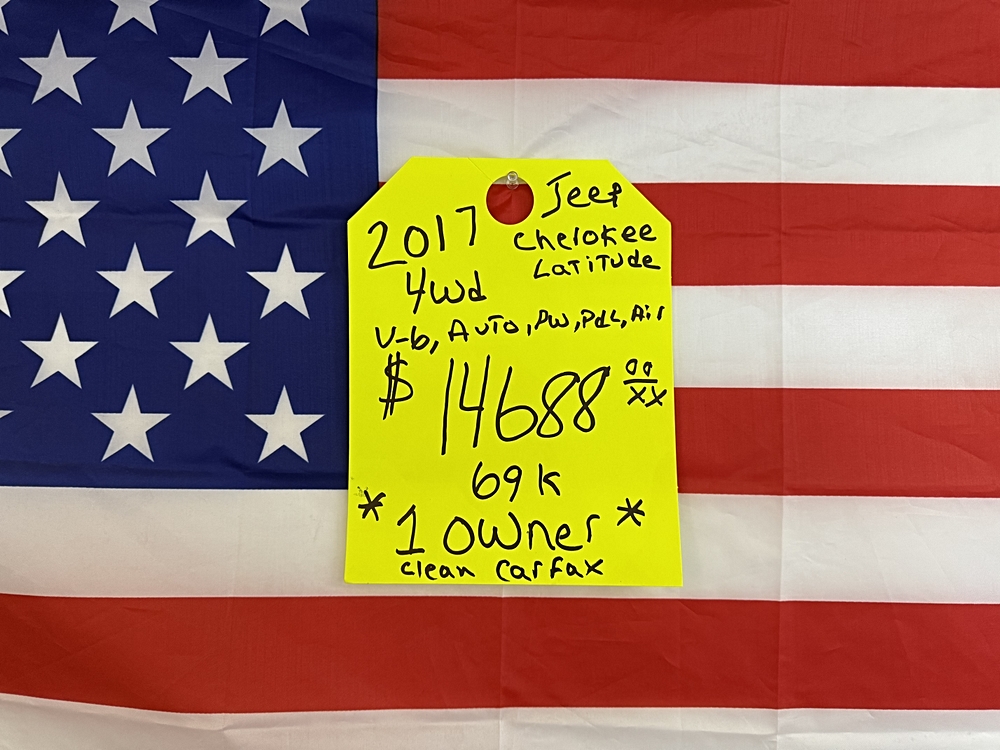 2017 Jeep
Cherokee
Latitude
4wd
V-6, Auto, PW, PdL, Air
$ 14688 00/xx
69k
* 1 owner *
clean carfax